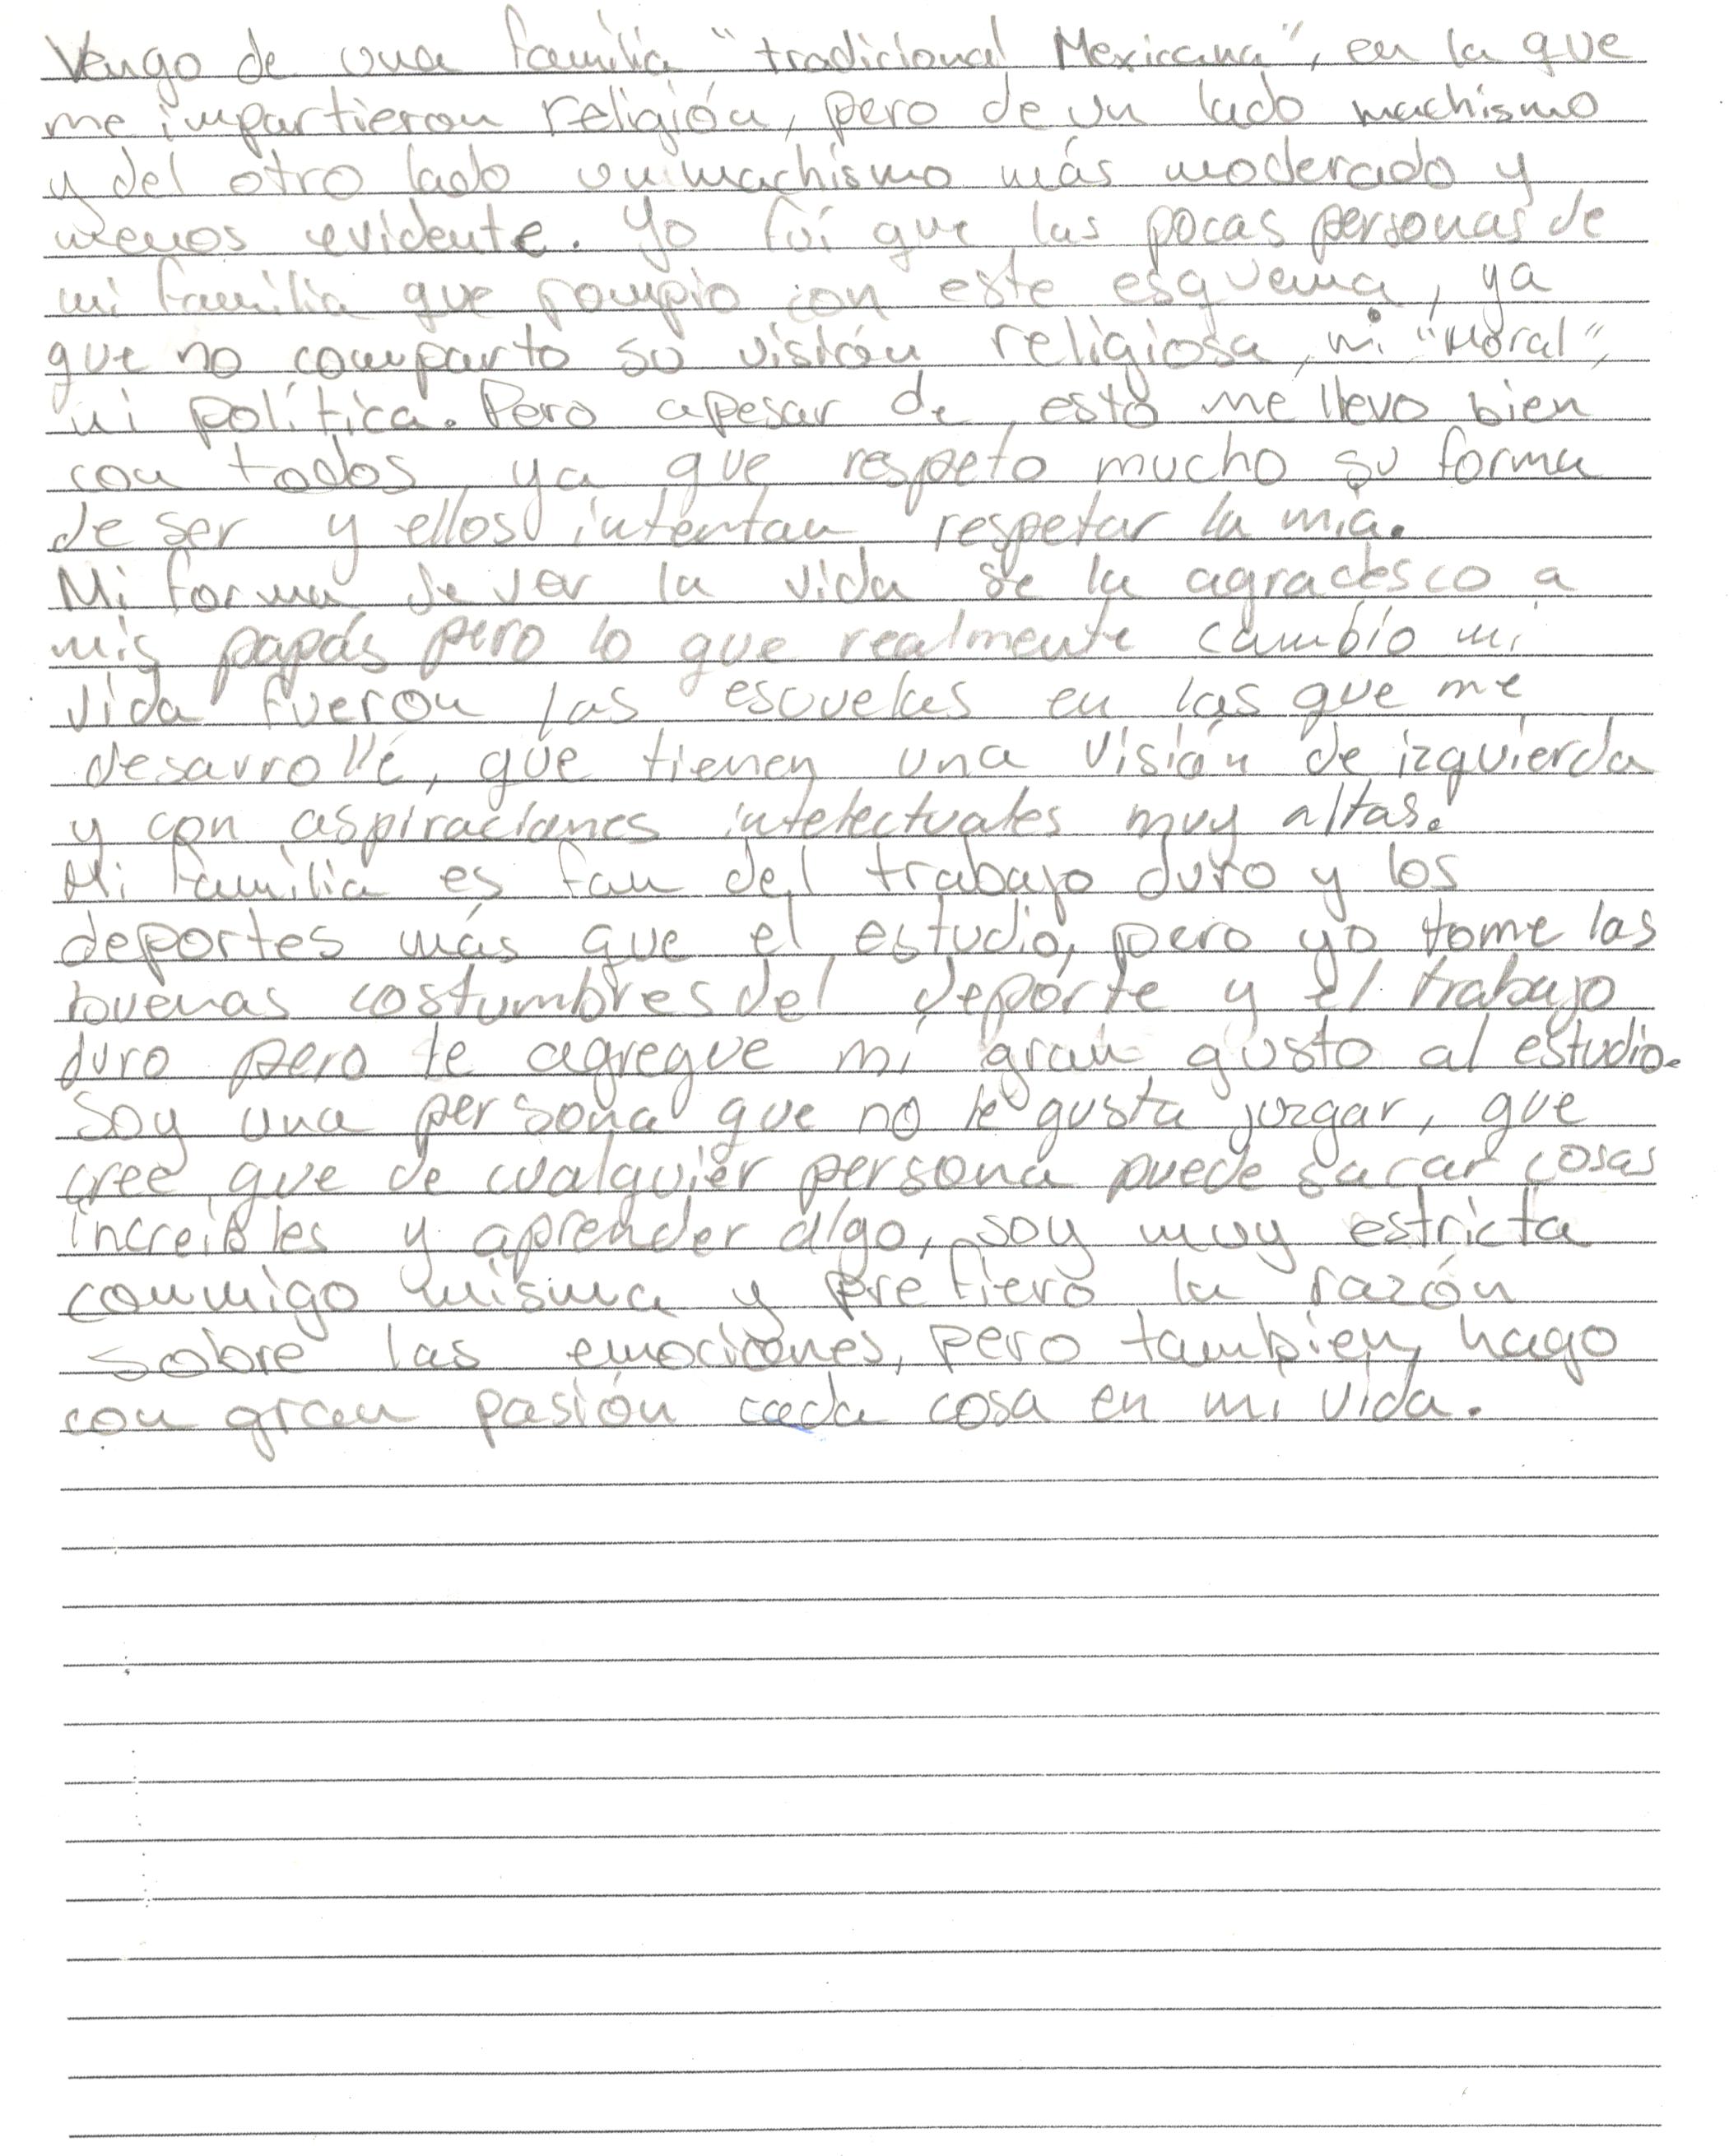 Vengo de una familia "tradicional Mexicana", en la que
me impartieron religión, pero de un lado machismo
y del otro lado un machismo más moderado y
menos evidente. Yo fuí que las pocas personas de
mi familia que rompio con este esquema, ya
que no comparto su visión religiosa, ni "Moral",
ni política. Pero apesar de esto me llevo bien
con todos ya que respeto mucho su forma
de ser y ellos intentan respetar la mia.
Mi forma de ver la vida se la agradesco a
mis papás pero lo que realmente cambio mi
vida fueron las escuelas en las que me
desarrollé, que tienen una visión de izquierda
y con aspiraciones intelectuales muy altas.
Mi familia es fan del trabajo duro y los
deportes más que el estudio, pero yo tome las
buenas costumbres del deporte y el trabajo
duro pero le agregue mi gran gusto al estudio.
Soy una persona que no le gusta juzgar, que
cree que de cualquier persona puede sacar cosas
increibles y aprender algo, soy muy estricta
conmigo misma y prefiero la razón
sobre las emociones, pero tambien hago
con gran pasión cada cosa en mi vida.